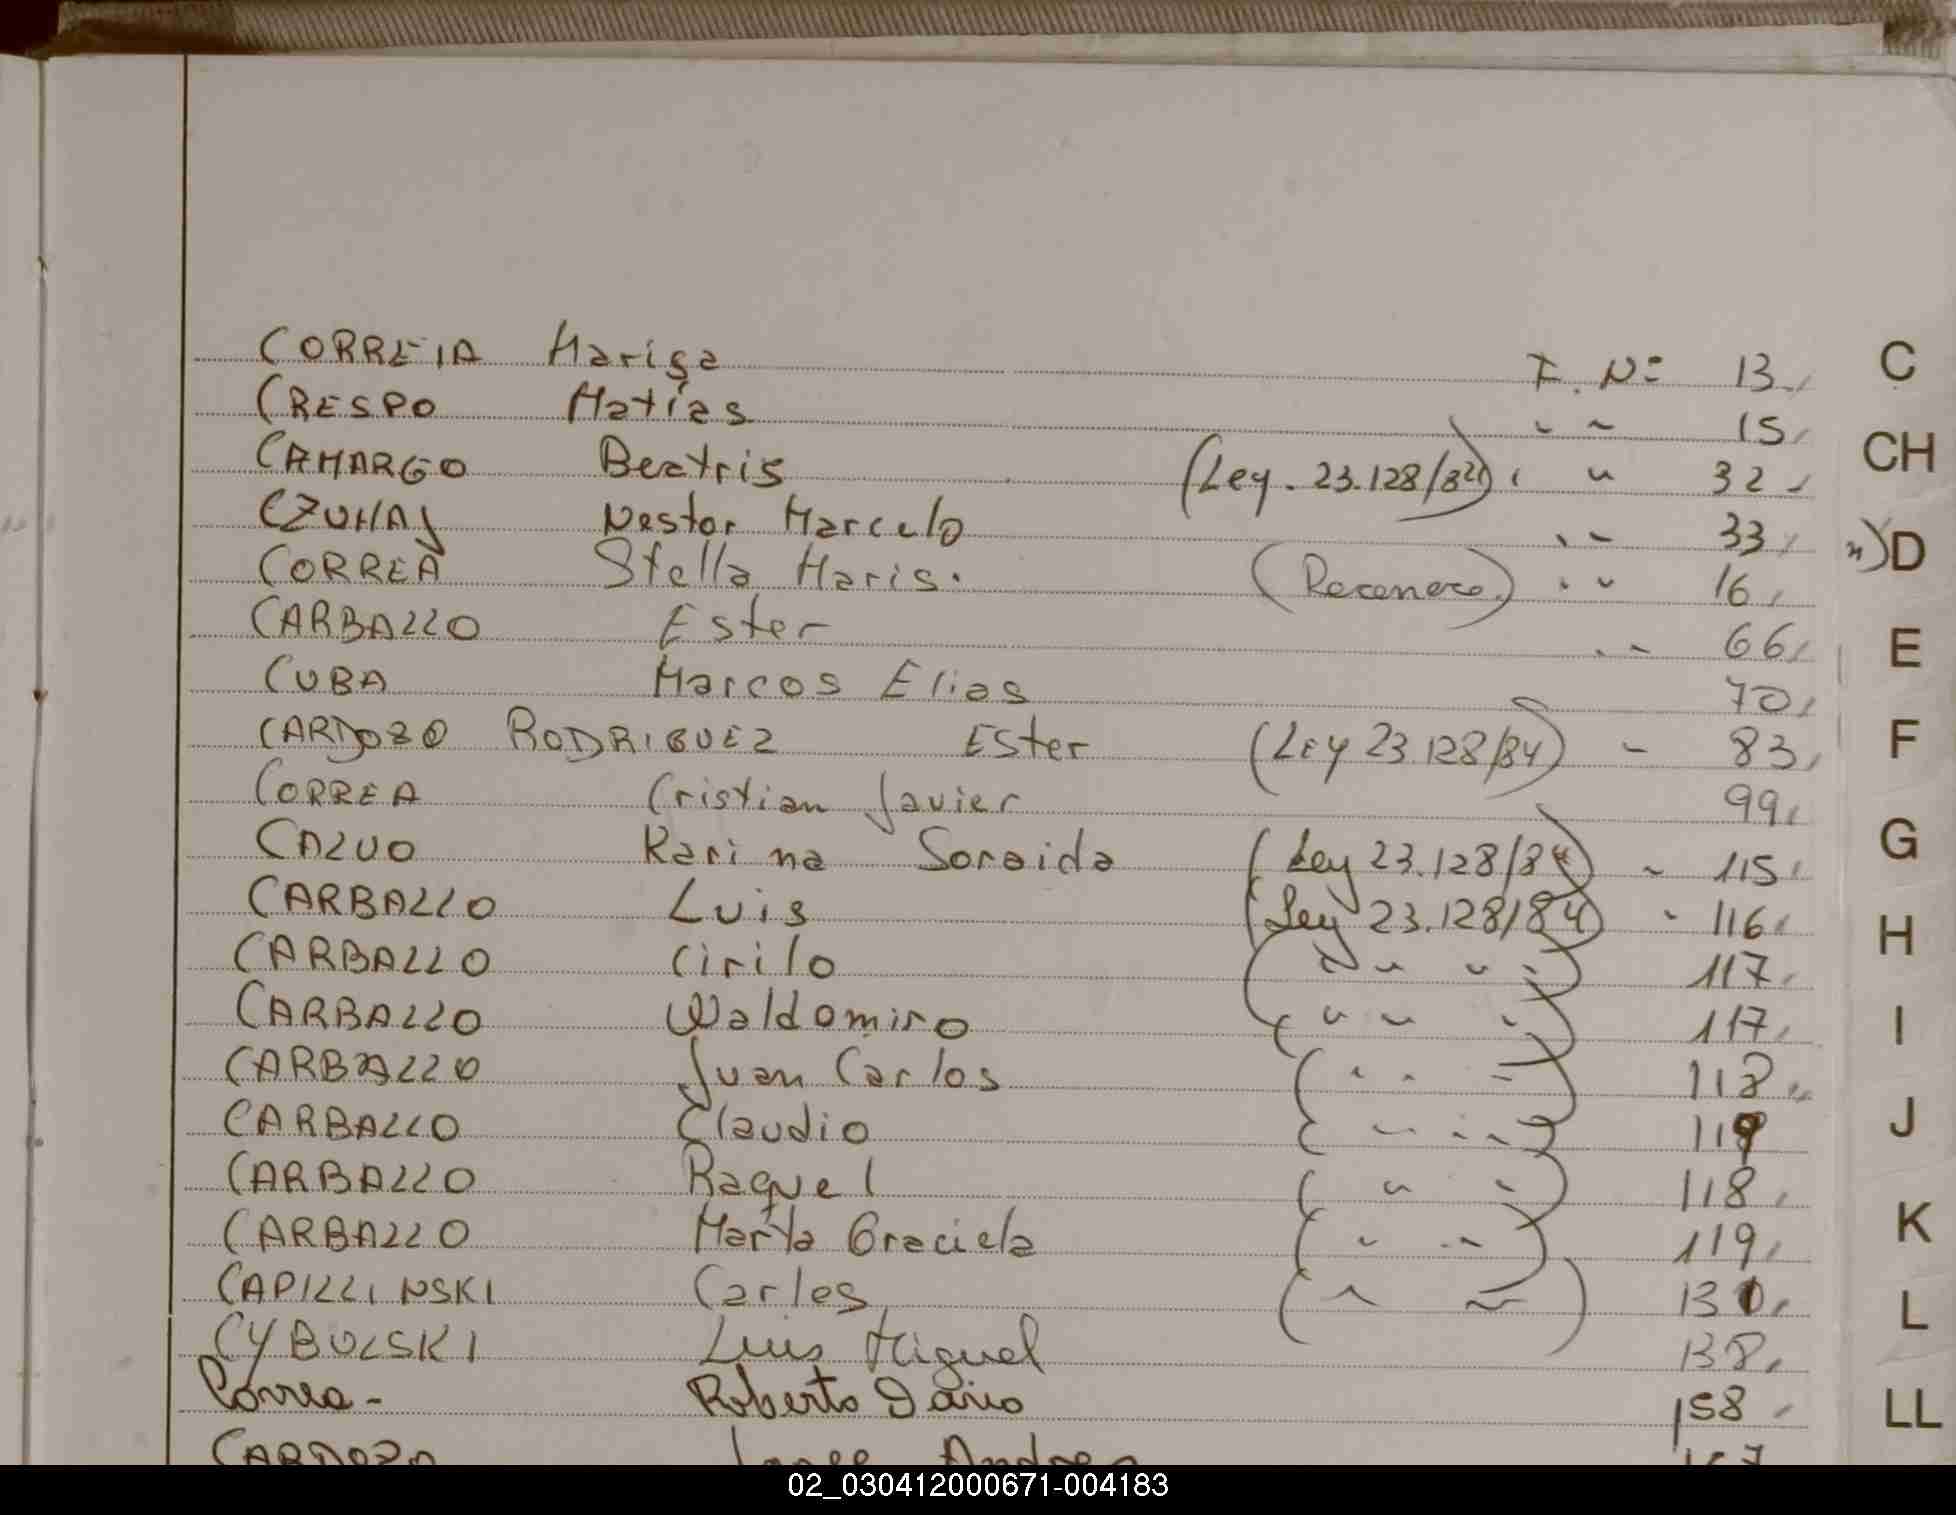 CORREIA Marisa F. Nº 13
CRESPO Matías " " 15
CAMARGO Beatris (Ley. 23.128/84) " " 32
CZUHAJ Nestor Marcelo " " 33
CORREA Stella Maris. (Reconoco.) " " 16
CARBALLO Ester " " 66
CUBA Marcos Elias 70
CARDOZO RODRIGUEZ Ester (Ley 23.128/84) " 83
CORREA Cristian Javier 99
CALVO Karina Soraida (Ley 23.128/84) " 115
CARBALLO Luis (Ley 23.128/84) " 116
CARBALLO Cirilo ( " " " " ) 117
CARBALLO Waldomiro ( " " " ) 117
CARBALLO Juan Carlos ( " " " ) 118
CARBALLO Claudio ( " " " ) 119
CARBALLO Raquel ( " " ) 118
CARBALLO Marta Graciela ( " " " ) 119
CAPILLINSKI Carlos ( " " ) 130
CYBULSKI Luis Miguel 138
Correa - Roberto Dario 158
CARDOZO Andrea
C
CH
D
E
F
G
H
I
J
K
L
LL
02_030412000671-004183